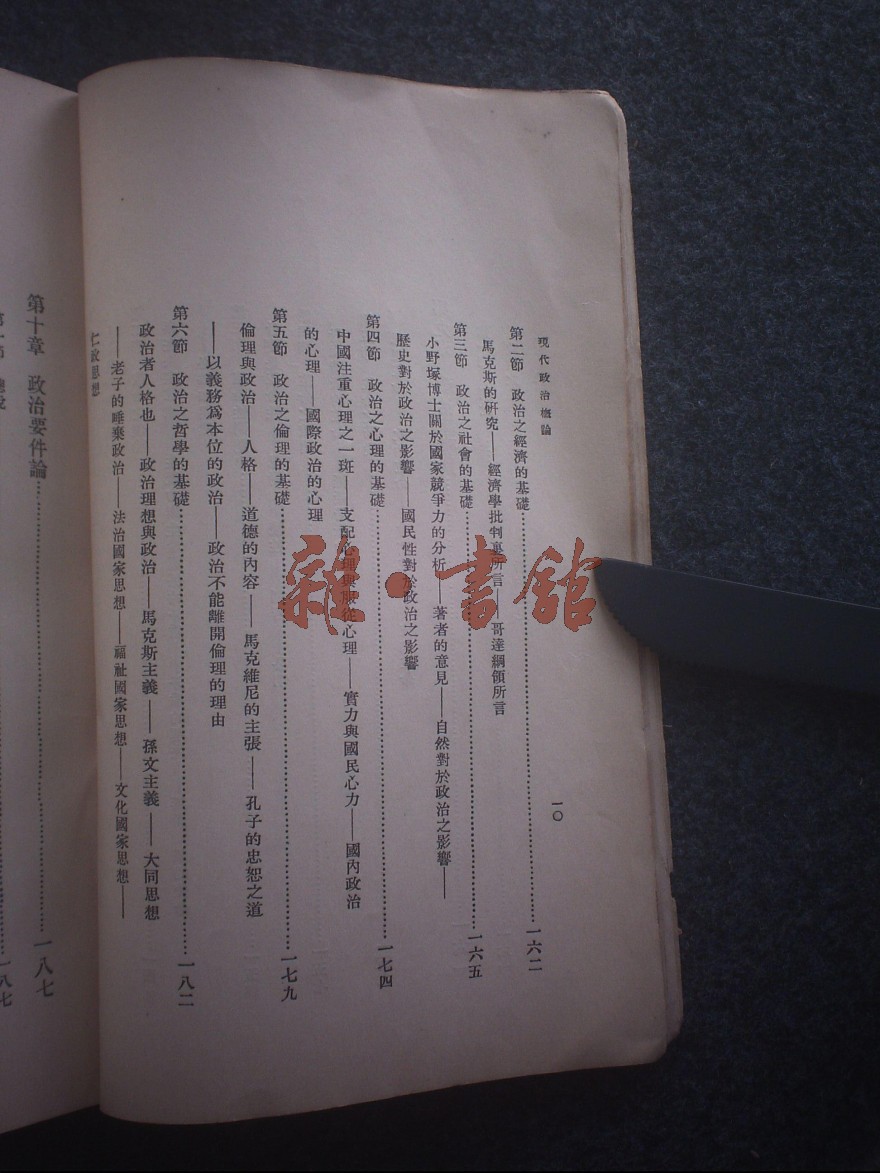 現代政治概論
一〇
第二節　政治之經濟的基礎……一六二
馬克斯的研究——經濟學批判裏所言——哥達綱領所言
第三節　政治之社會的基礎……一六五
小野塚博士關於國家競爭力的分析——著者的意見——自然對於政治之影響——
歷史對於政治之影響——國民性對於政治之影響
第四節　政治之心理的基礎……一七四
中國注重心理之一斑——支配心理與服從心理——實力與國民心力——國內政治
的心理——國際政治的心理
第五節　政治之倫理的基礎……一七九
倫理與政治——人格——道德的內容——馬克維尼的主張——孔子的忠恕之道
——以義務為本位的政治——政治不能離開倫理的理由
第六節　政治之哲學的基礎……一八二
政治者人格也——政治理想與政治——馬克斯主義——孫文主義——大同思想
——老子的唾棄政治　法治國家思想——福祉國家思想——文化國家思想——
仁政思想
第十章　政治要件論……一八七
第一節……一八七
雜·書館